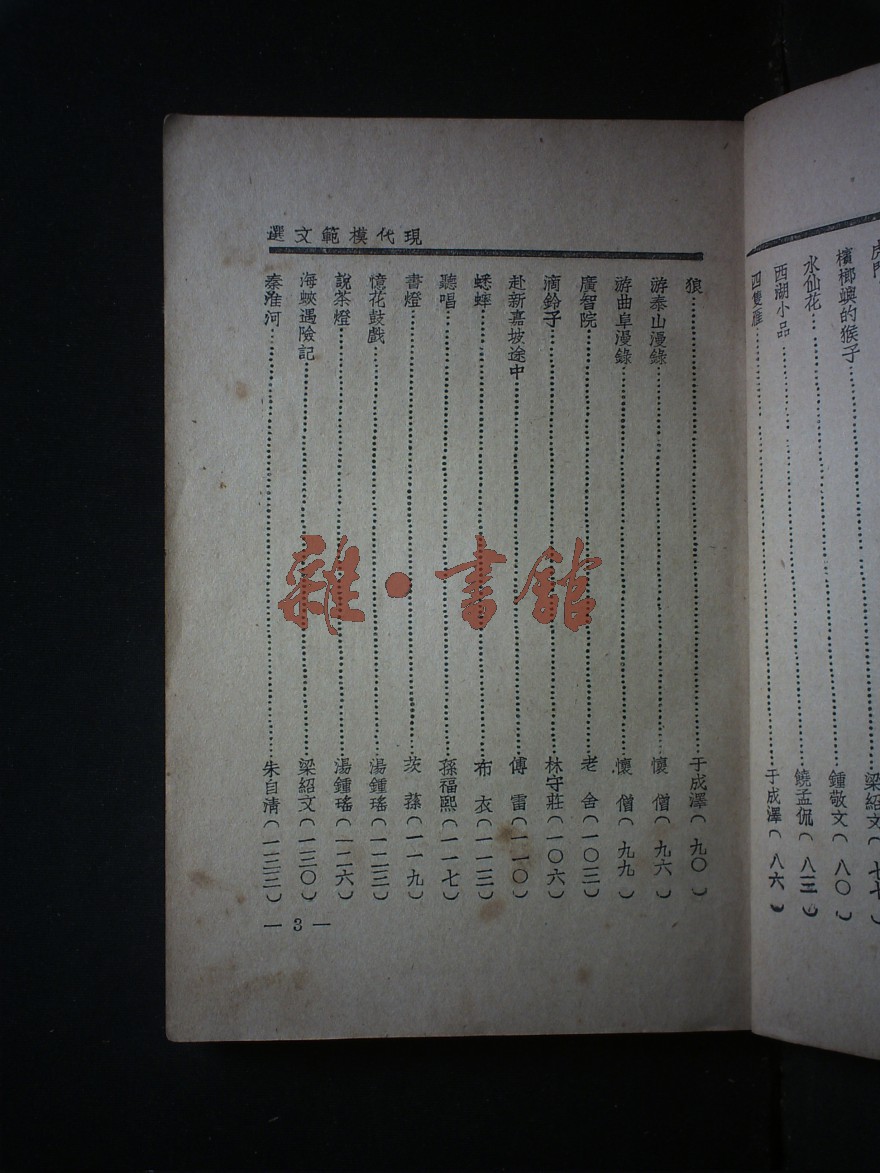 檳榔嶼的猴子……梁紹文(七七)
水仙花……鍾敬文(八〇)
西湖小品……饒孟侃(八三)
四隻雁……于成澤(八六)
現代模範文選
狼……于成澤(九〇)
游泰山漫錄……懷僧(九六)
游曲阜漫錄……懷僧(九九)
廣智院……老舍(一〇三)
滴鈴子……林守莊(一〇六)
赴新嘉坡途中……傅雷(一一〇)
蟋蟀……布衣(一一三)
聽唱……孫福熙(一一七)
書燈……茨蓀(一一九)
憶花鼓戲……湯鍾瑤(一二三)
說茶燈……湯鍾瑤(一二六)
海蛟遇險記……梁紹文(一三〇)
秦淮河……朱自清(一三三)
— 3 —
雜·書館